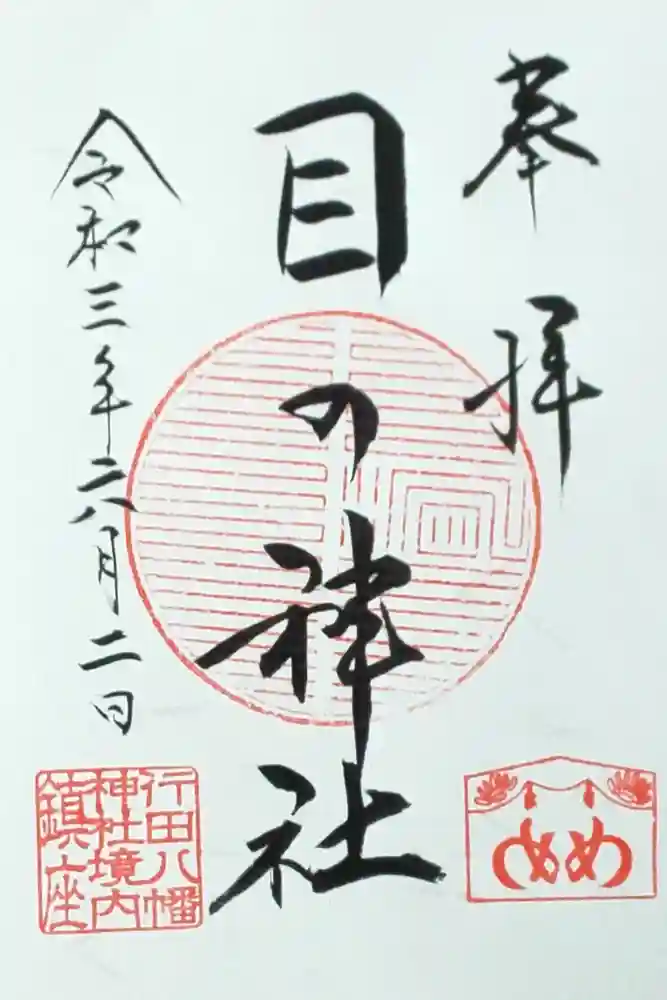 奉拝
目の神社
令和三年六月二日
行田八幡
神社境内
鎮座
めめ